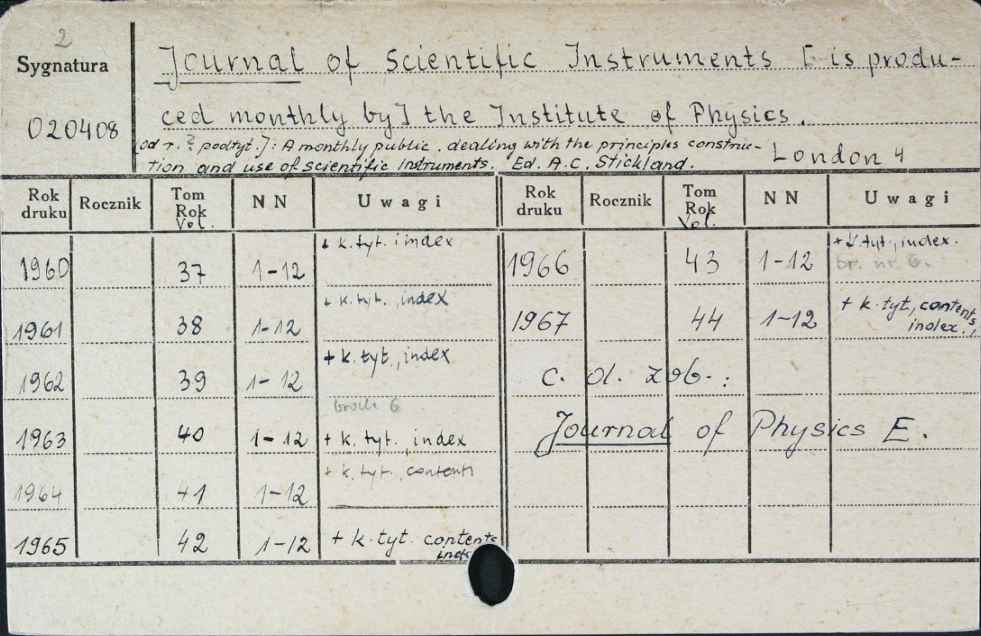 2
Sygnatura
020408
Journal of Scientific Instruments [is produ-
ced monthly by] the Institute of Physics.
[od r. ? podtyt.]: A monthly public. dealing with the principles construc-
tion and use of scientific Instruments. Ed. A.C. Stickland. London 4
Rok druku Rocznik Tom Rok Vol. NN Uwagi Rok druku Rocznik Tom Rok Vol. NN Uwagi
1960 37 1-12 + k. tyt. i index
1961 38 1-12 + k. tyt., index
1962 39 1-12 + k. tyt., index
1963 40 1-12 + k. tyt. index
1964 41 1-12 + k. tyt., contents
1965 42 1-12 + k. tyt. contents
1966 43 1-12 + k. tyt., index.
br. nr. 6.
1967 44 1-12 + k. tyt, contents,
index.
c. d. zob.:
Journal of Physics E.